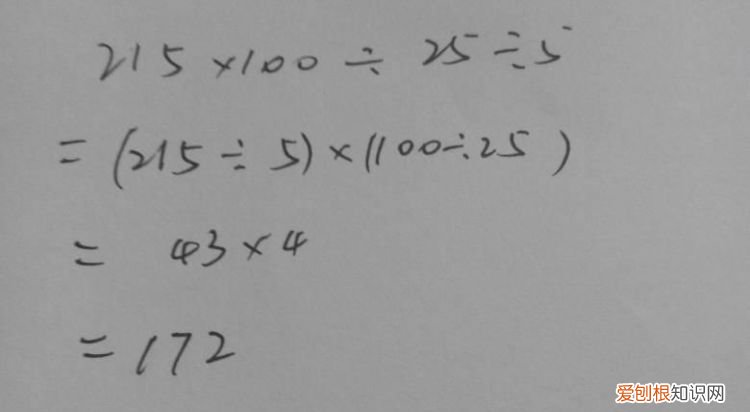 215×100÷25÷5
=(215÷5)×(100÷25)
=43×4
=172
爱刨根知识网